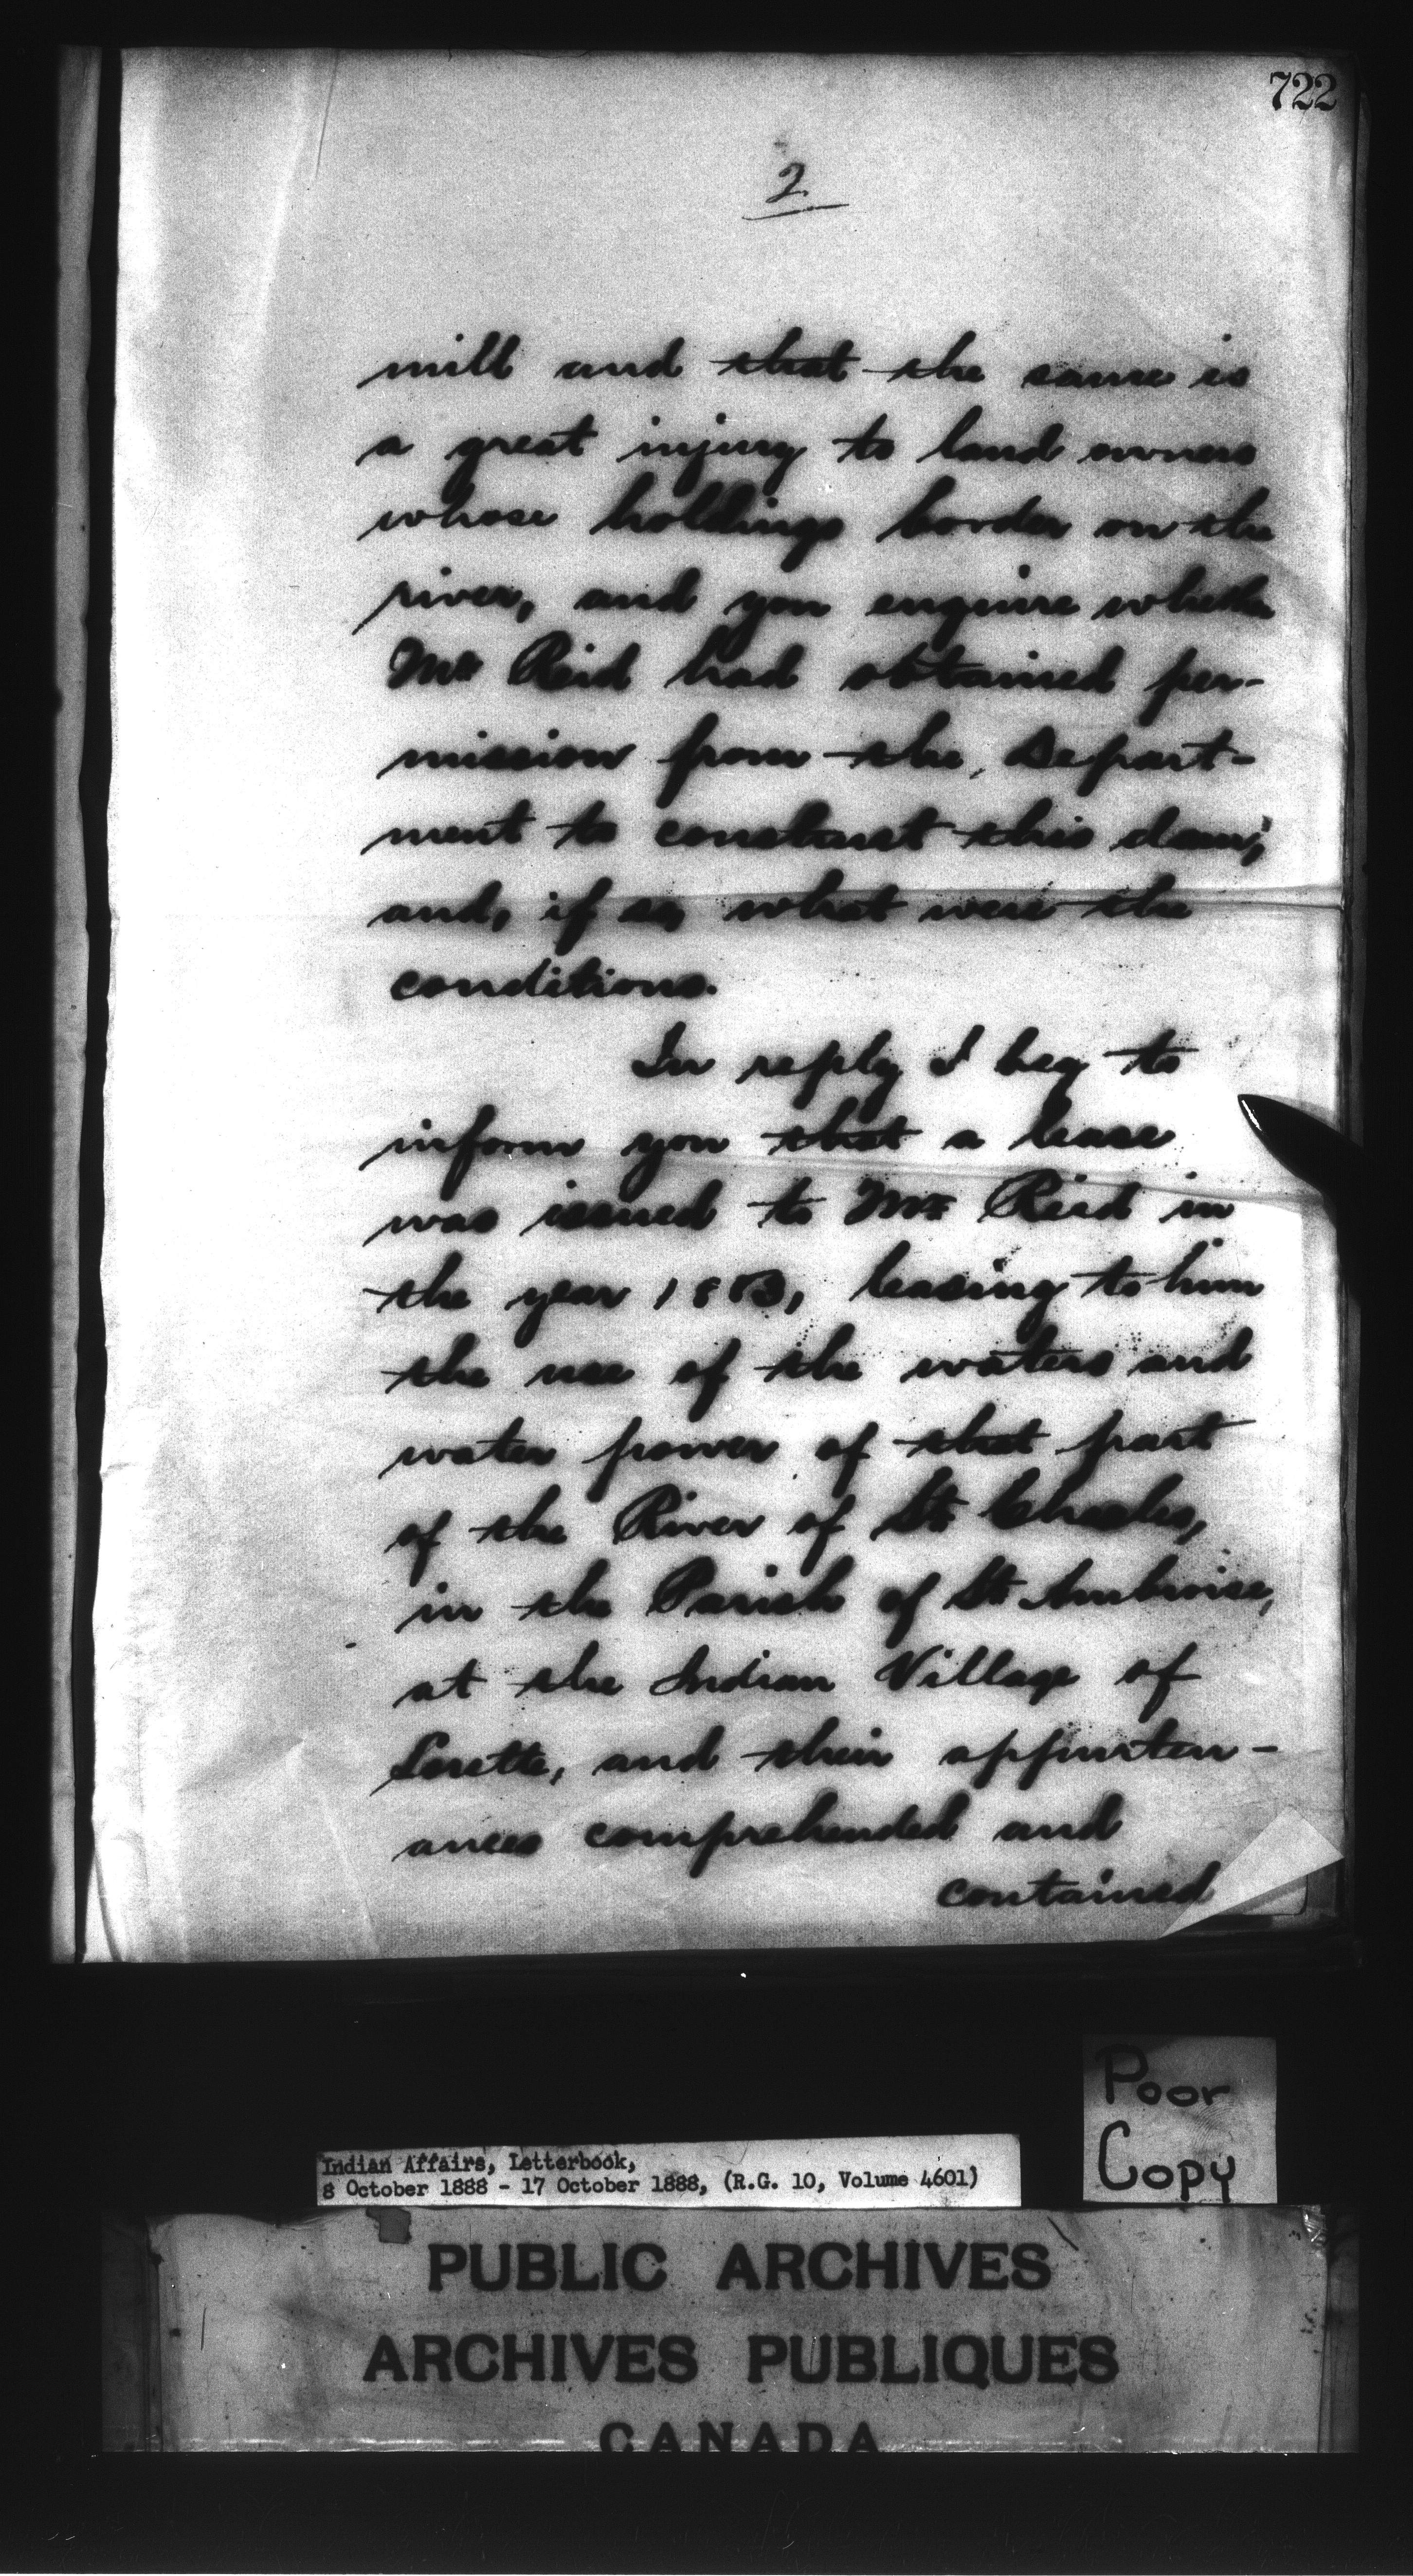 722
2
mill and that the same is
a great injury to land owners
whose holdings border on the
river, and you enquire whether
Mr Reid had obtained per-
mission from the Depart-
ment to construct this dam;
and, if so, what were the
conditions.
In reply I beg to
inform you that a lease
was issued to Mr Reid in
the year 1883, leasing to him
the use of the waters and
water power of that part
of the River of St Charles,
in the Parish of St Ambroise,
at the Indian Village of
Lorette, and their appurten-
ances comprehended and
contained
Poor
Copy
Indian Affairs, Letterbook,
8 October 1888 - 17 October 1888, (R.G. 10, Volume 4601)
PUBLIC ARCHIVES
ARCHIVES PUBLIQUES
CANADA